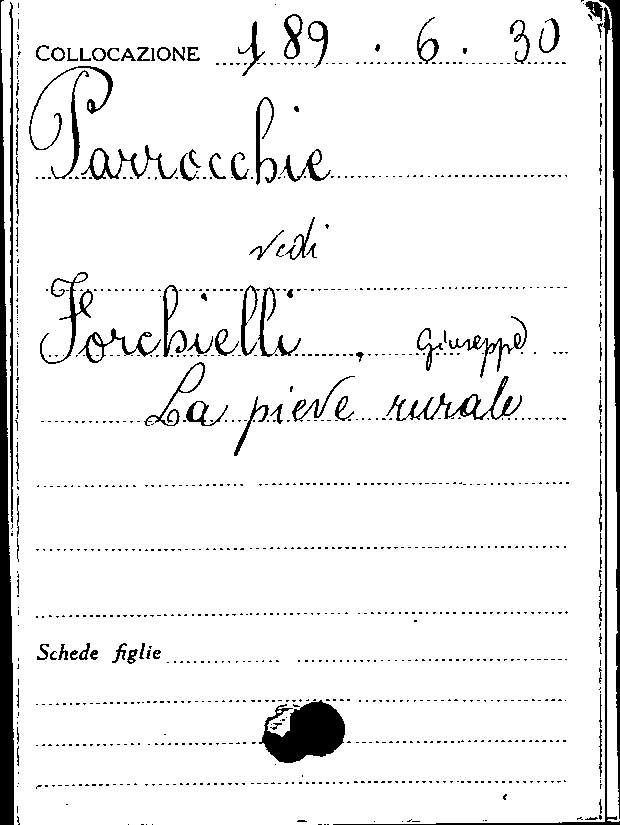 COLLOCAZIONE 189.6.30
Parrocchie
vedi
Forchielli, Giuseppe
La pieve rurale
Schede figlie